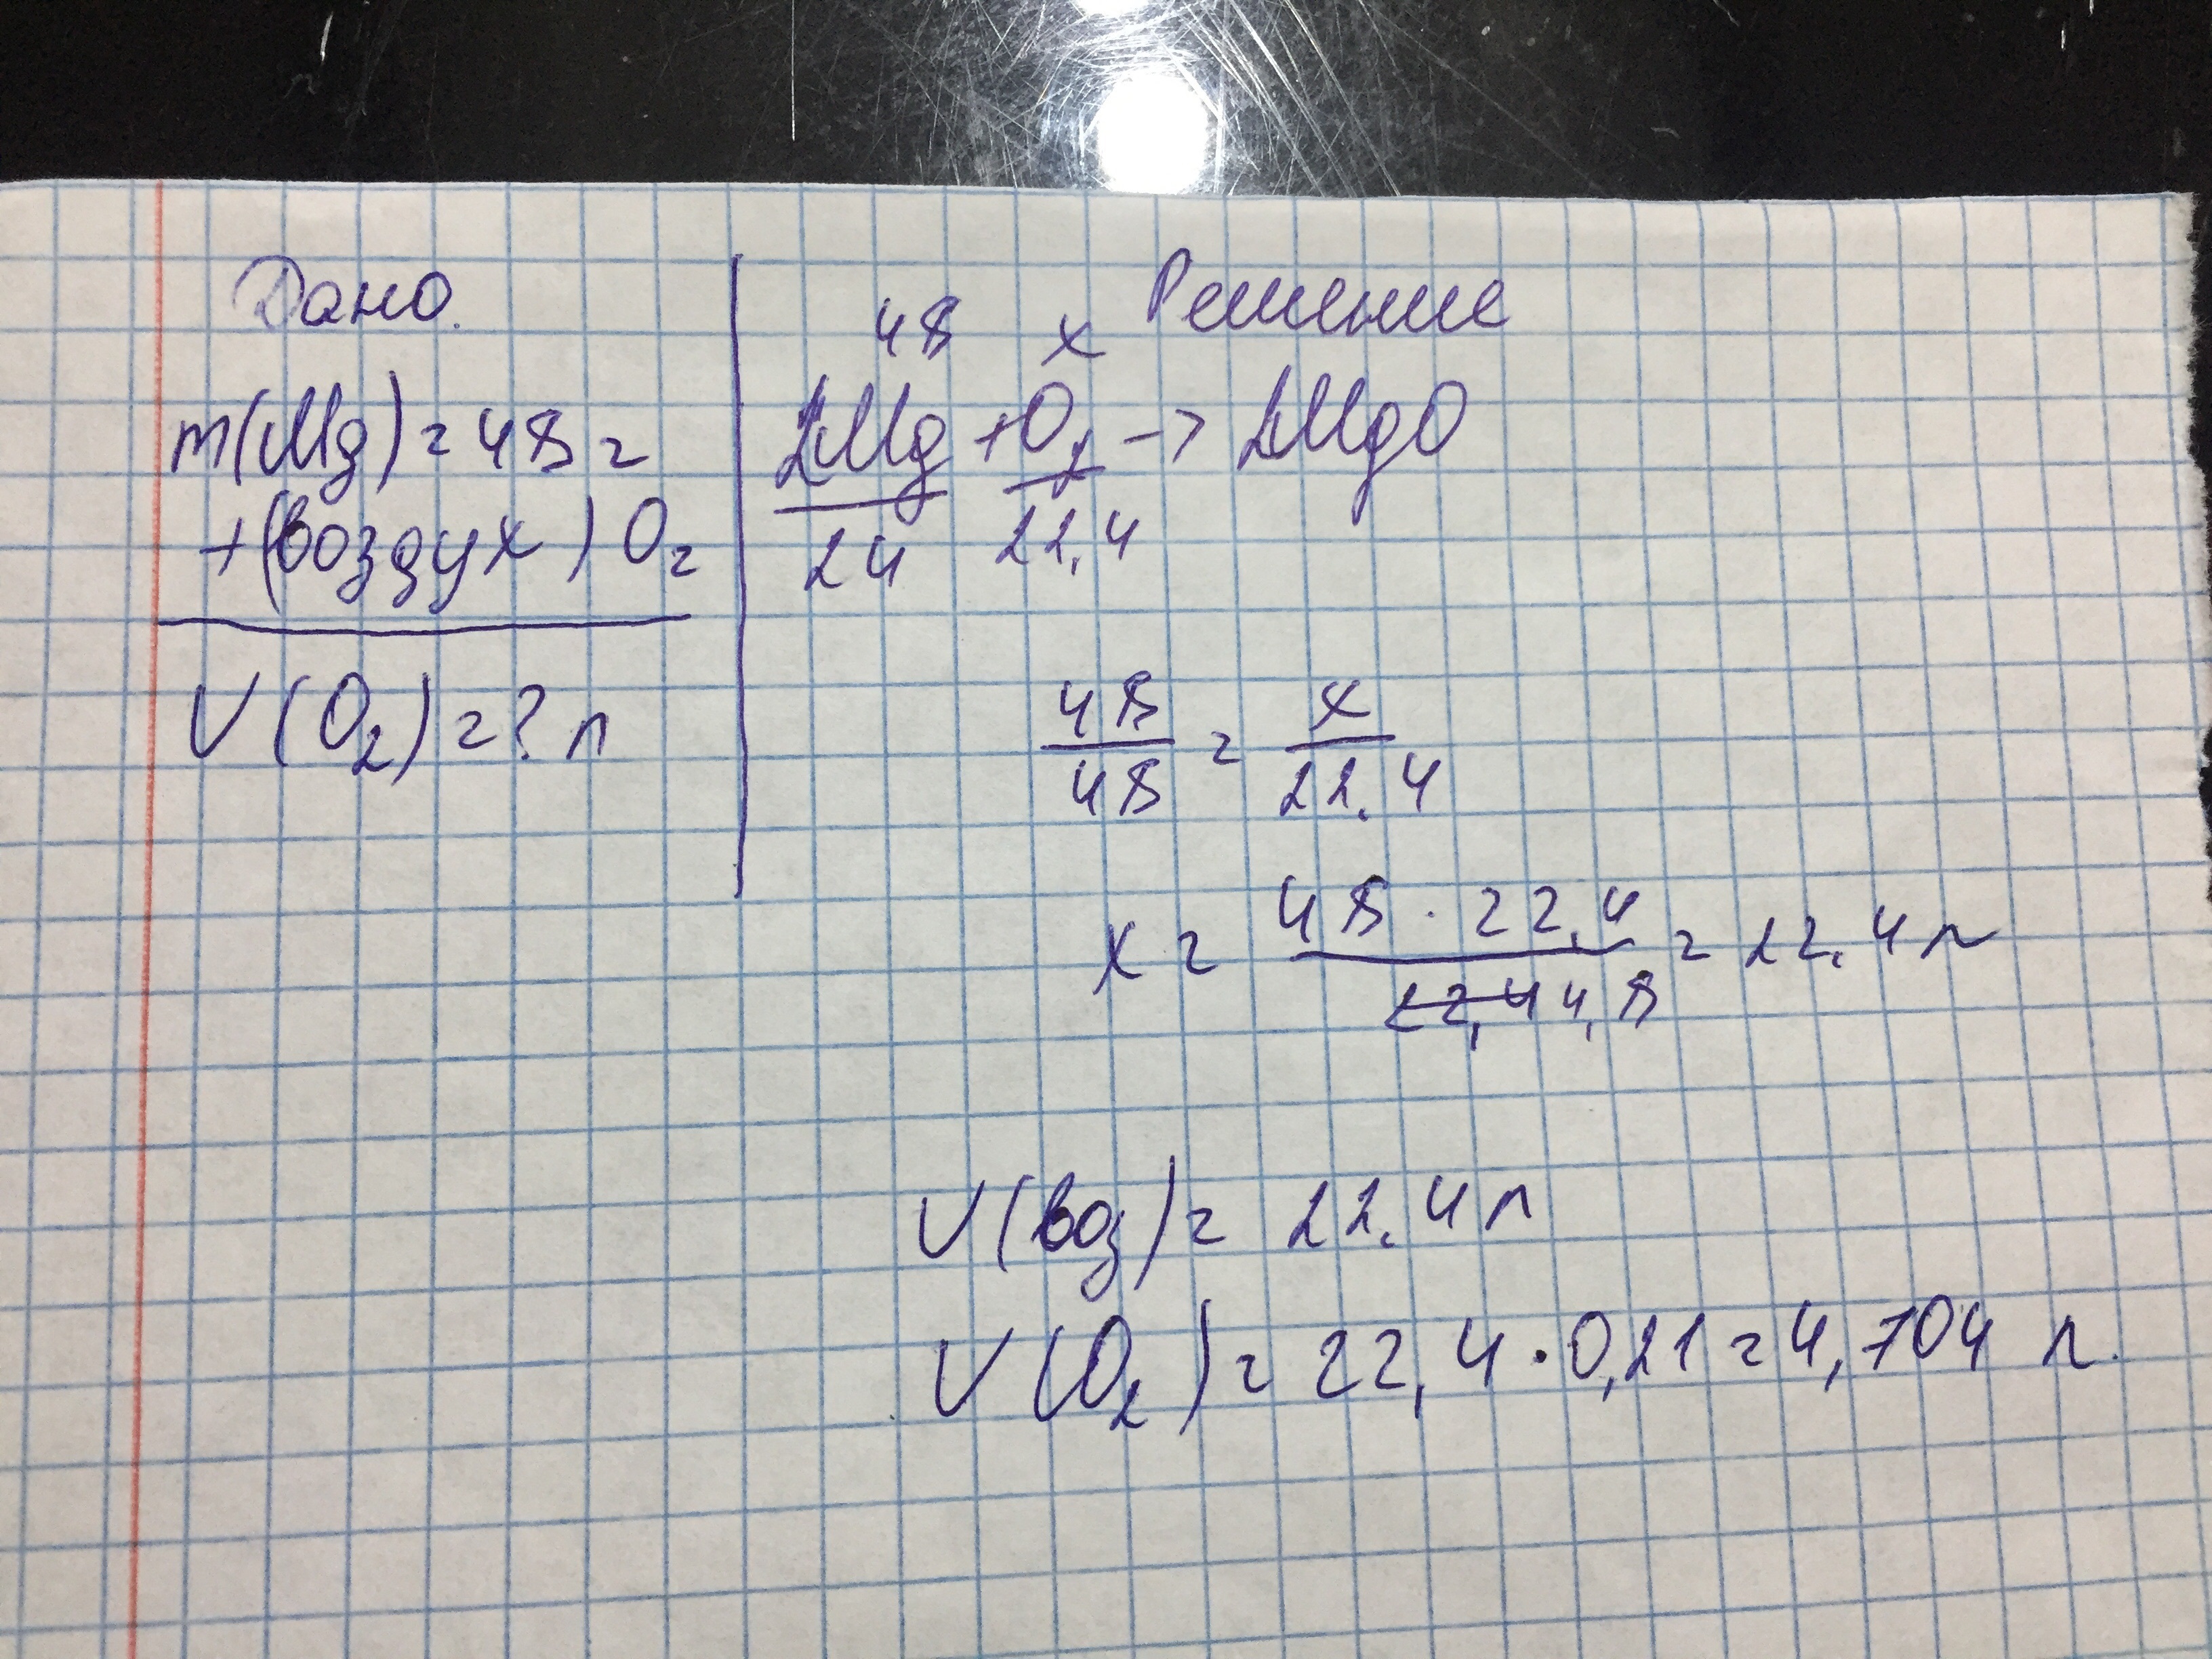 Дано.
m(Mg) = 48 г
+(воздух) O₂
V(O₂) = ? л
Решение
48 x
2Mg + O₂ → 2MgO
24 22,4
48/48 = x/22,4
x = 48 · 22,4 / 22,4 4,8 = 22,4 л
V(воз) = 22,4 л
V(O₂) = 22,4 · 0,21 = 4,704 л.